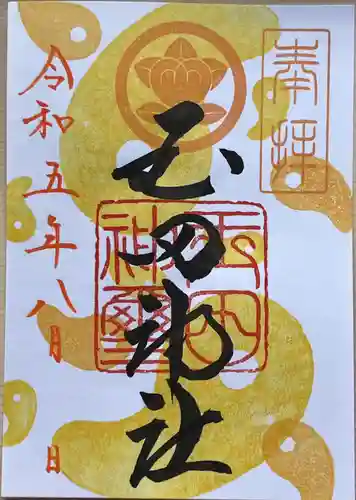 奉拝
玉田神社
玉田
神璽
令和五年八月 日